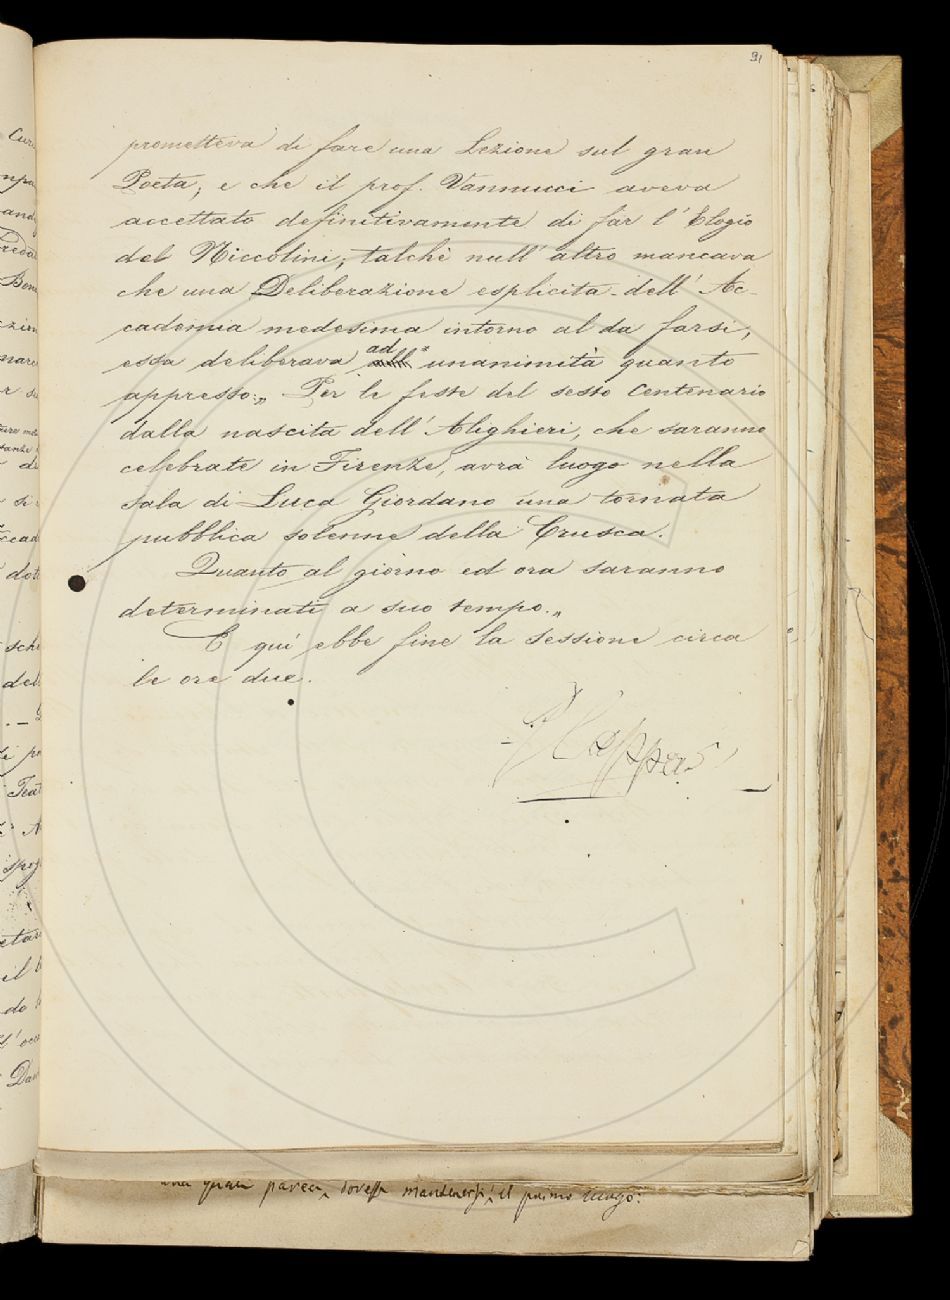 91
prometteva di fare una Lezione sul gran
Poeta; e che il prof. Vannucci aveva
accettato definitivamente di far l'Elogio
del Niccolini; talchè null'altro mancava
che una Deliberazione esplicita dell'Ac-
cademia medesima intorno al da farsi,
essa deliberava ad unanimità quanto
appresso: „ Per le feste del sesto Centenario
dalla nascita dell'Alighieri, che saranno
celebrate in Firenze, avrà luogo nella
Sala di Luca Giordano una tornata
pubblica solenne della Crusca.
Quanto al giorno ed ora saranno
determinati a suo tempo. „
E qui ebbe fine la Sessione circa
le ore due.
parea, dovesse mantenersi il primo luogo: